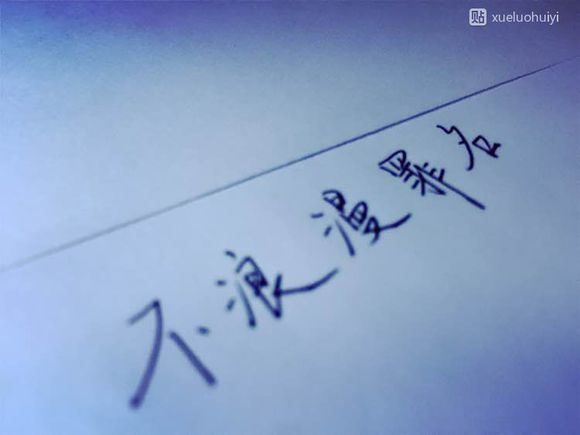 贴 xueluohuiyi
不浪漫罪名